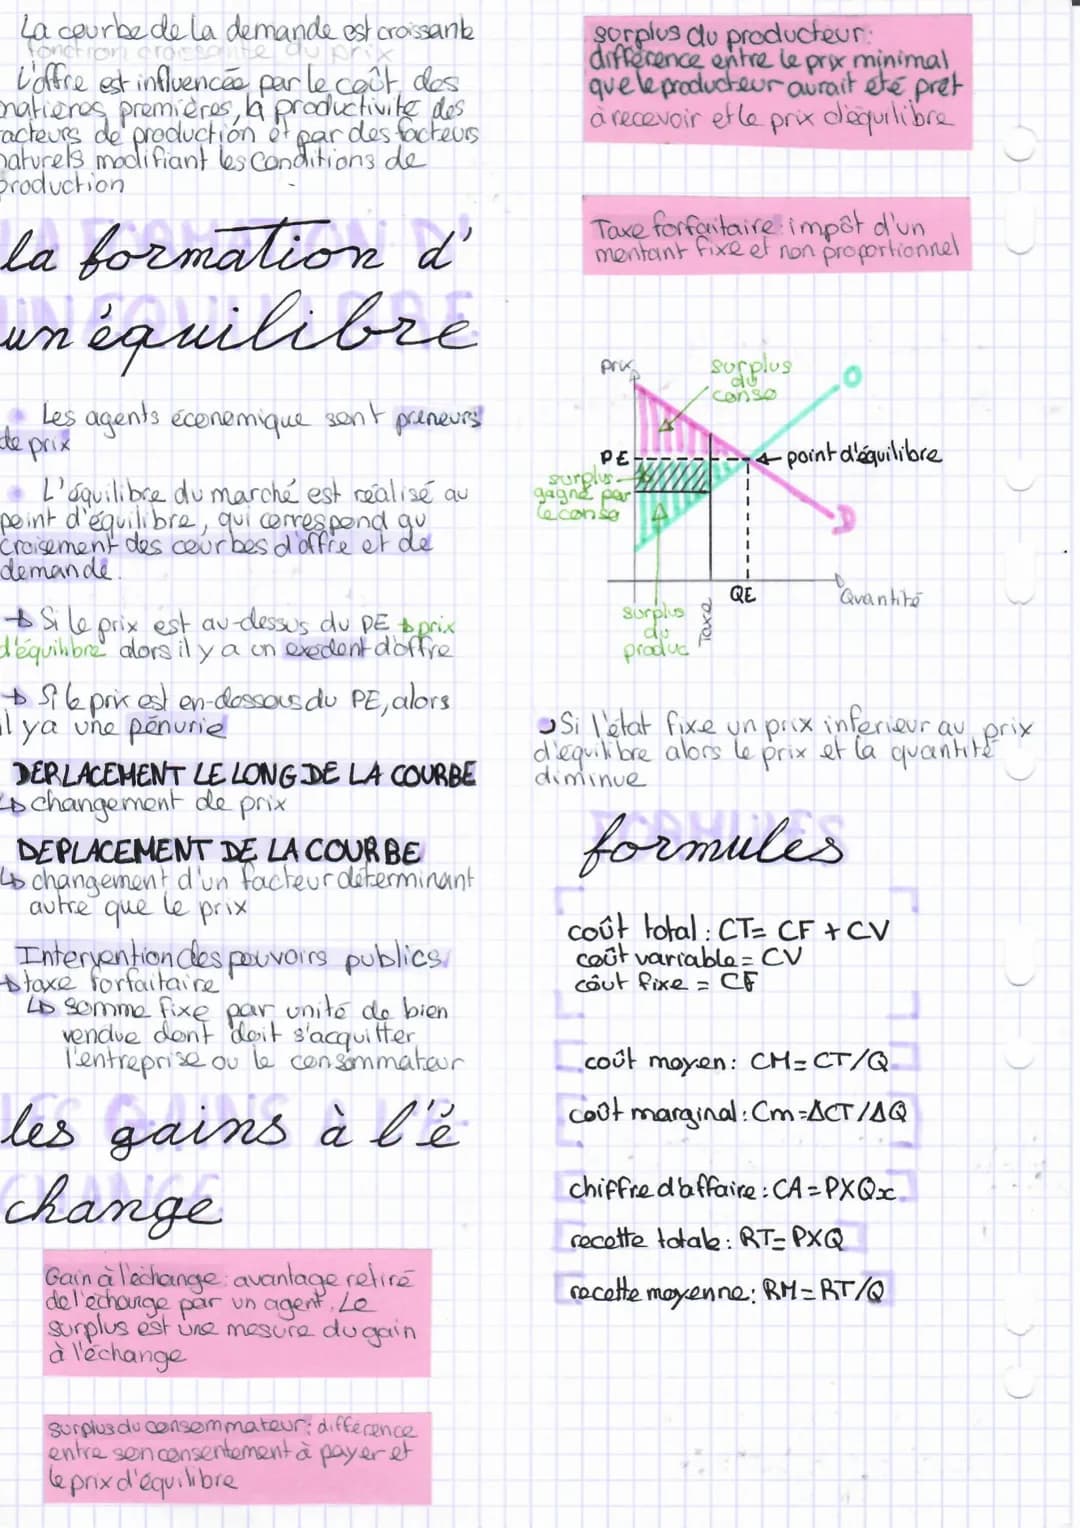 La courbe de la demande est croissante
fonction croissante du prix
L'offre est influencée par le coût des
matières premières, la productivité des
facteurs de production et par des facteurs
naturels modifiant les conditions de
production
LA FORMATION D'
la formation d'
UN ÉQUILIBRE
un équilibre
Les agents économique sont preneurs
de prix
L'équilibre du marché est réalisé au
point d'équilibre, qui correspond au
croisement des courbes d'offre et de
demande.
→ Si le prix est au-dessus du PE → prix
d'équilibre alors il y a un exedent d'offre
→ Si le prix est en-dessous du PE, alors
il y a une pénurie
DEPLACEMENT LE LONG DE LA COURBE
↳ changement de prix
DEPLACEMENT DE LA COURBE
↳ changement d'un facteur déterminant
autre que le prix
Intervention des pouvoirs publics
→ taxe forfaitaire
↳ somme fixe par unité de bien
vendue dont doit s'acquitter
l'entreprise ou le consommateur
LES GAINS À L'É
les gains à l'é
CHANGE
change
Gain à l'échange: avantage retiré
de l'échange par un agent. Le
surplus est une mesure du gain
à l'échange
surplus du consommateur: différence
entre son consentement à payer et
le prix d'équilibre
surplus du producteur:
différence entre le prix minimal
que le producteur aurait été prêt
à recevoir et le prix d'équilibre
Taxe forfaitaire: impôt d'un
montant fixe et non proportionnel
Prix
surplus
du
conso
O
PE
point d'équilibre
surplus
gagné par
le conso
D
QE
Quantité
surplus
du
produc
Taxe
Si l'état fixe un prix inferieur au prix
d'equilibre alors le prix et la quantité
diminue
FORMULES
formules
coût total: CT= CF + CV
coût variable = CV
côut fixe = CF
coût moyen: CM= CT/Q
coût marginal: Cm=ΔCT/ΔQ
chiffre d'affaire: CA=PXQx
recette totale: RT= PXQ
recette moyenne: RM= RT/Q